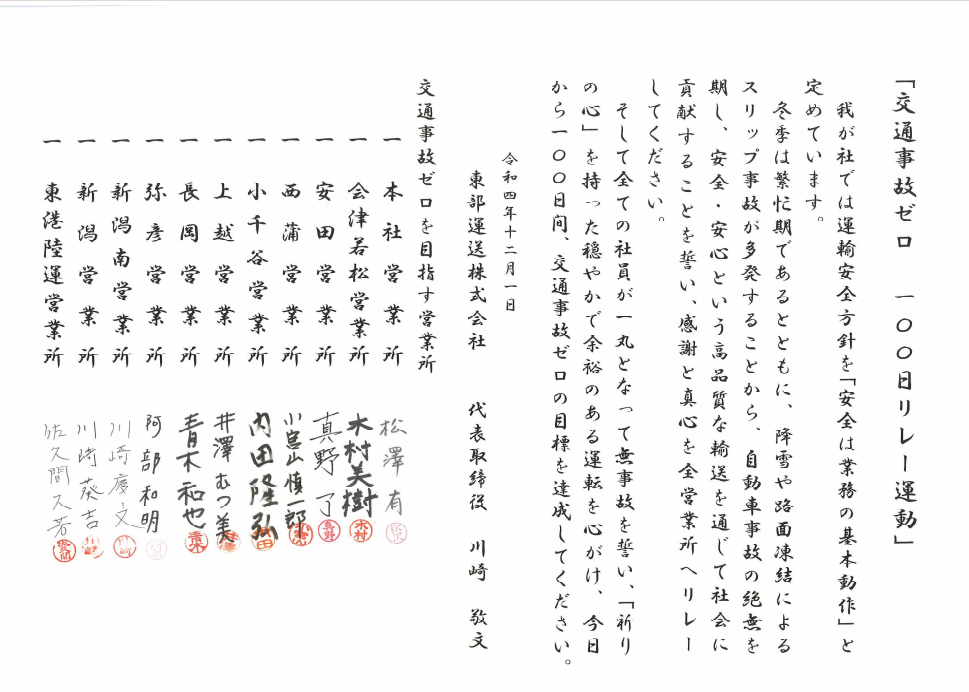 「交通事故ゼロ 一〇〇日リレー運動」
我が社では運輸安全方針を「安全は業務の基本動作」と
定めています。
冬季は繁忙期であるとともに、降雪や路面凍結による
スリップ事故が多発することから、自動車事故の絶無を
期し、安全・安心という高品質な輸送を通じて社会に
貢献することを誓い、感謝と真心を全営業所へリレー
してください。
そして全ての社員が一丸となって無事故を誓い、「祈り
の心」を持った穏やかで余裕のある運転を心がけ、今日
から一〇〇日間、交通事故ゼロの目標を達成してください。
令和四年十二月一日
東部運送株式会社 代表取締役 川崎 敬文
交通事故ゼロを目指す営業所
一 本社営業所 松澤有
一 会津若松営業所 木村美樹 木村
一 安田営業所 真野了 真野
一 西蒲営業所 慎一郎
一 小千谷営業所 内田隆弘 内田
一 上越営業所 井澤むつ美
一 長岡営業所 青木和也 青木
一 弥彦営業所 阿部和明
一 新潟南営業所 川崎慶文 川崎
一 新潟営業所 川崎葵吉 川崎
一 東港陸運営業所 佐久間久芳 佐久間